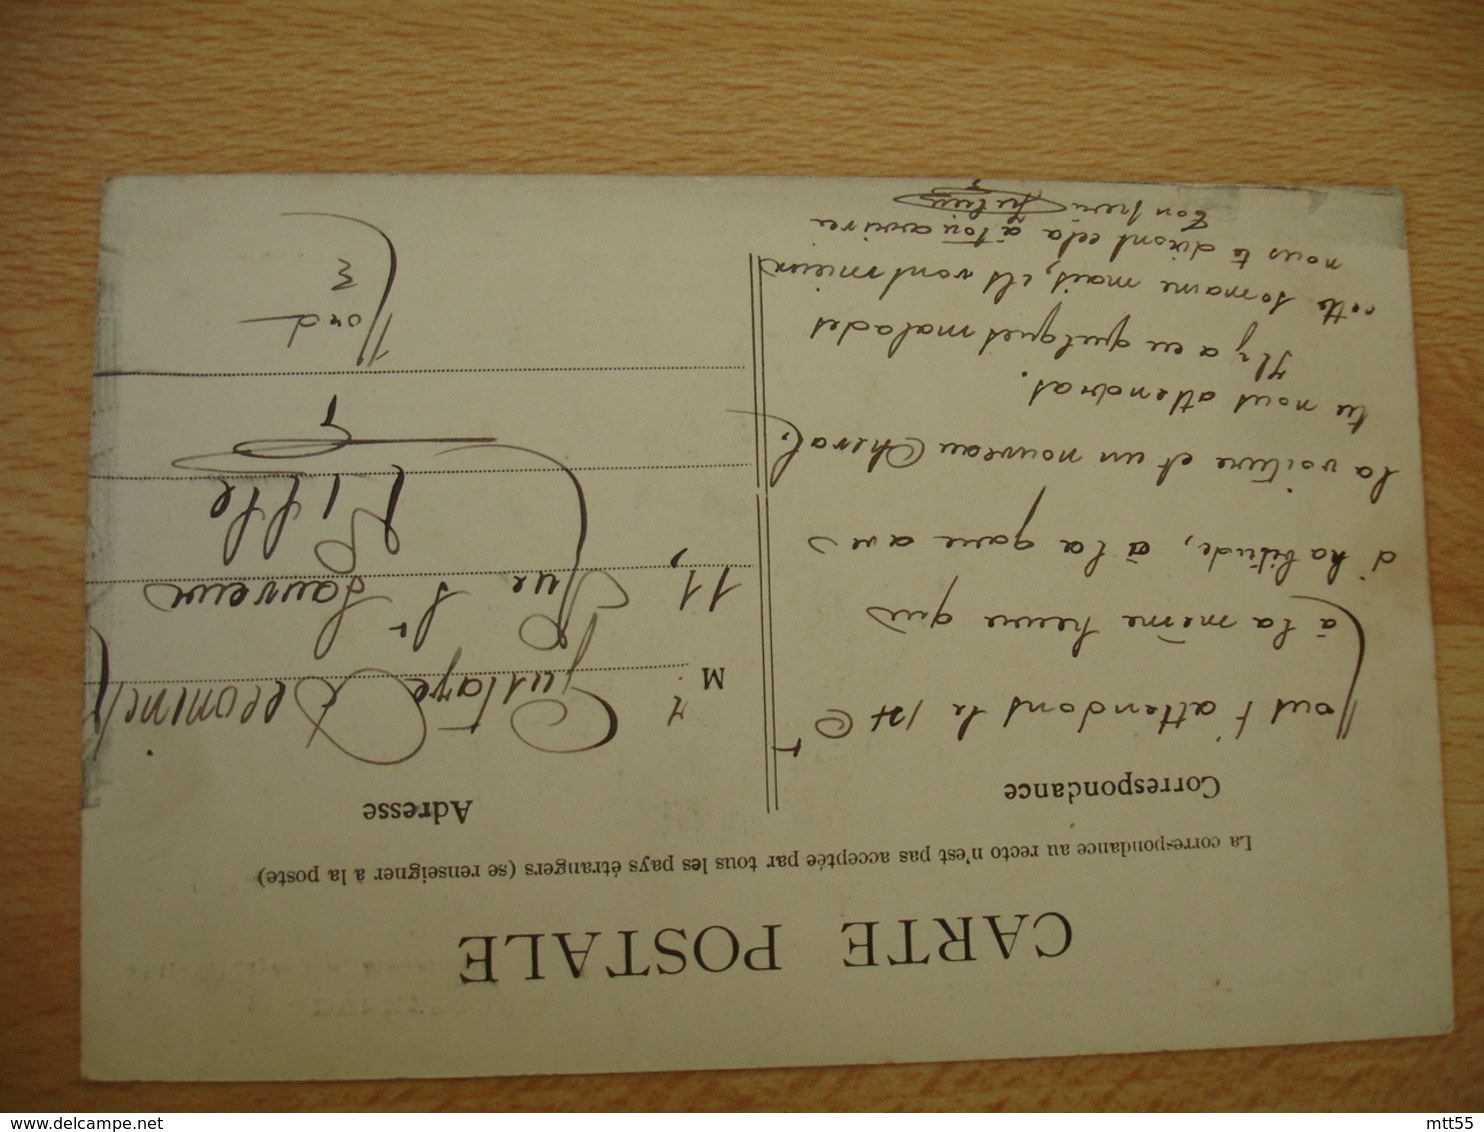 CARTE POSTALE
La correspondance au recto n'est pas acceptée par tous les pays étrangers (se renseigner à la poste)
Correspondance
Nous t'attendons le 1er Ct
à la même heure que
d'habitude, à la gare avec
la voiture et un nouveau Cheval.
tu nous attendras.
Il y a eu quelques malades
cette semaine mais, ils vont mieux
nous te dirons cela à ton arrivée
Ton frère Julien
Adresse
M r Gustave
11, Rue St Sauveur
Lille
Nord
delcampe.net
mtt55